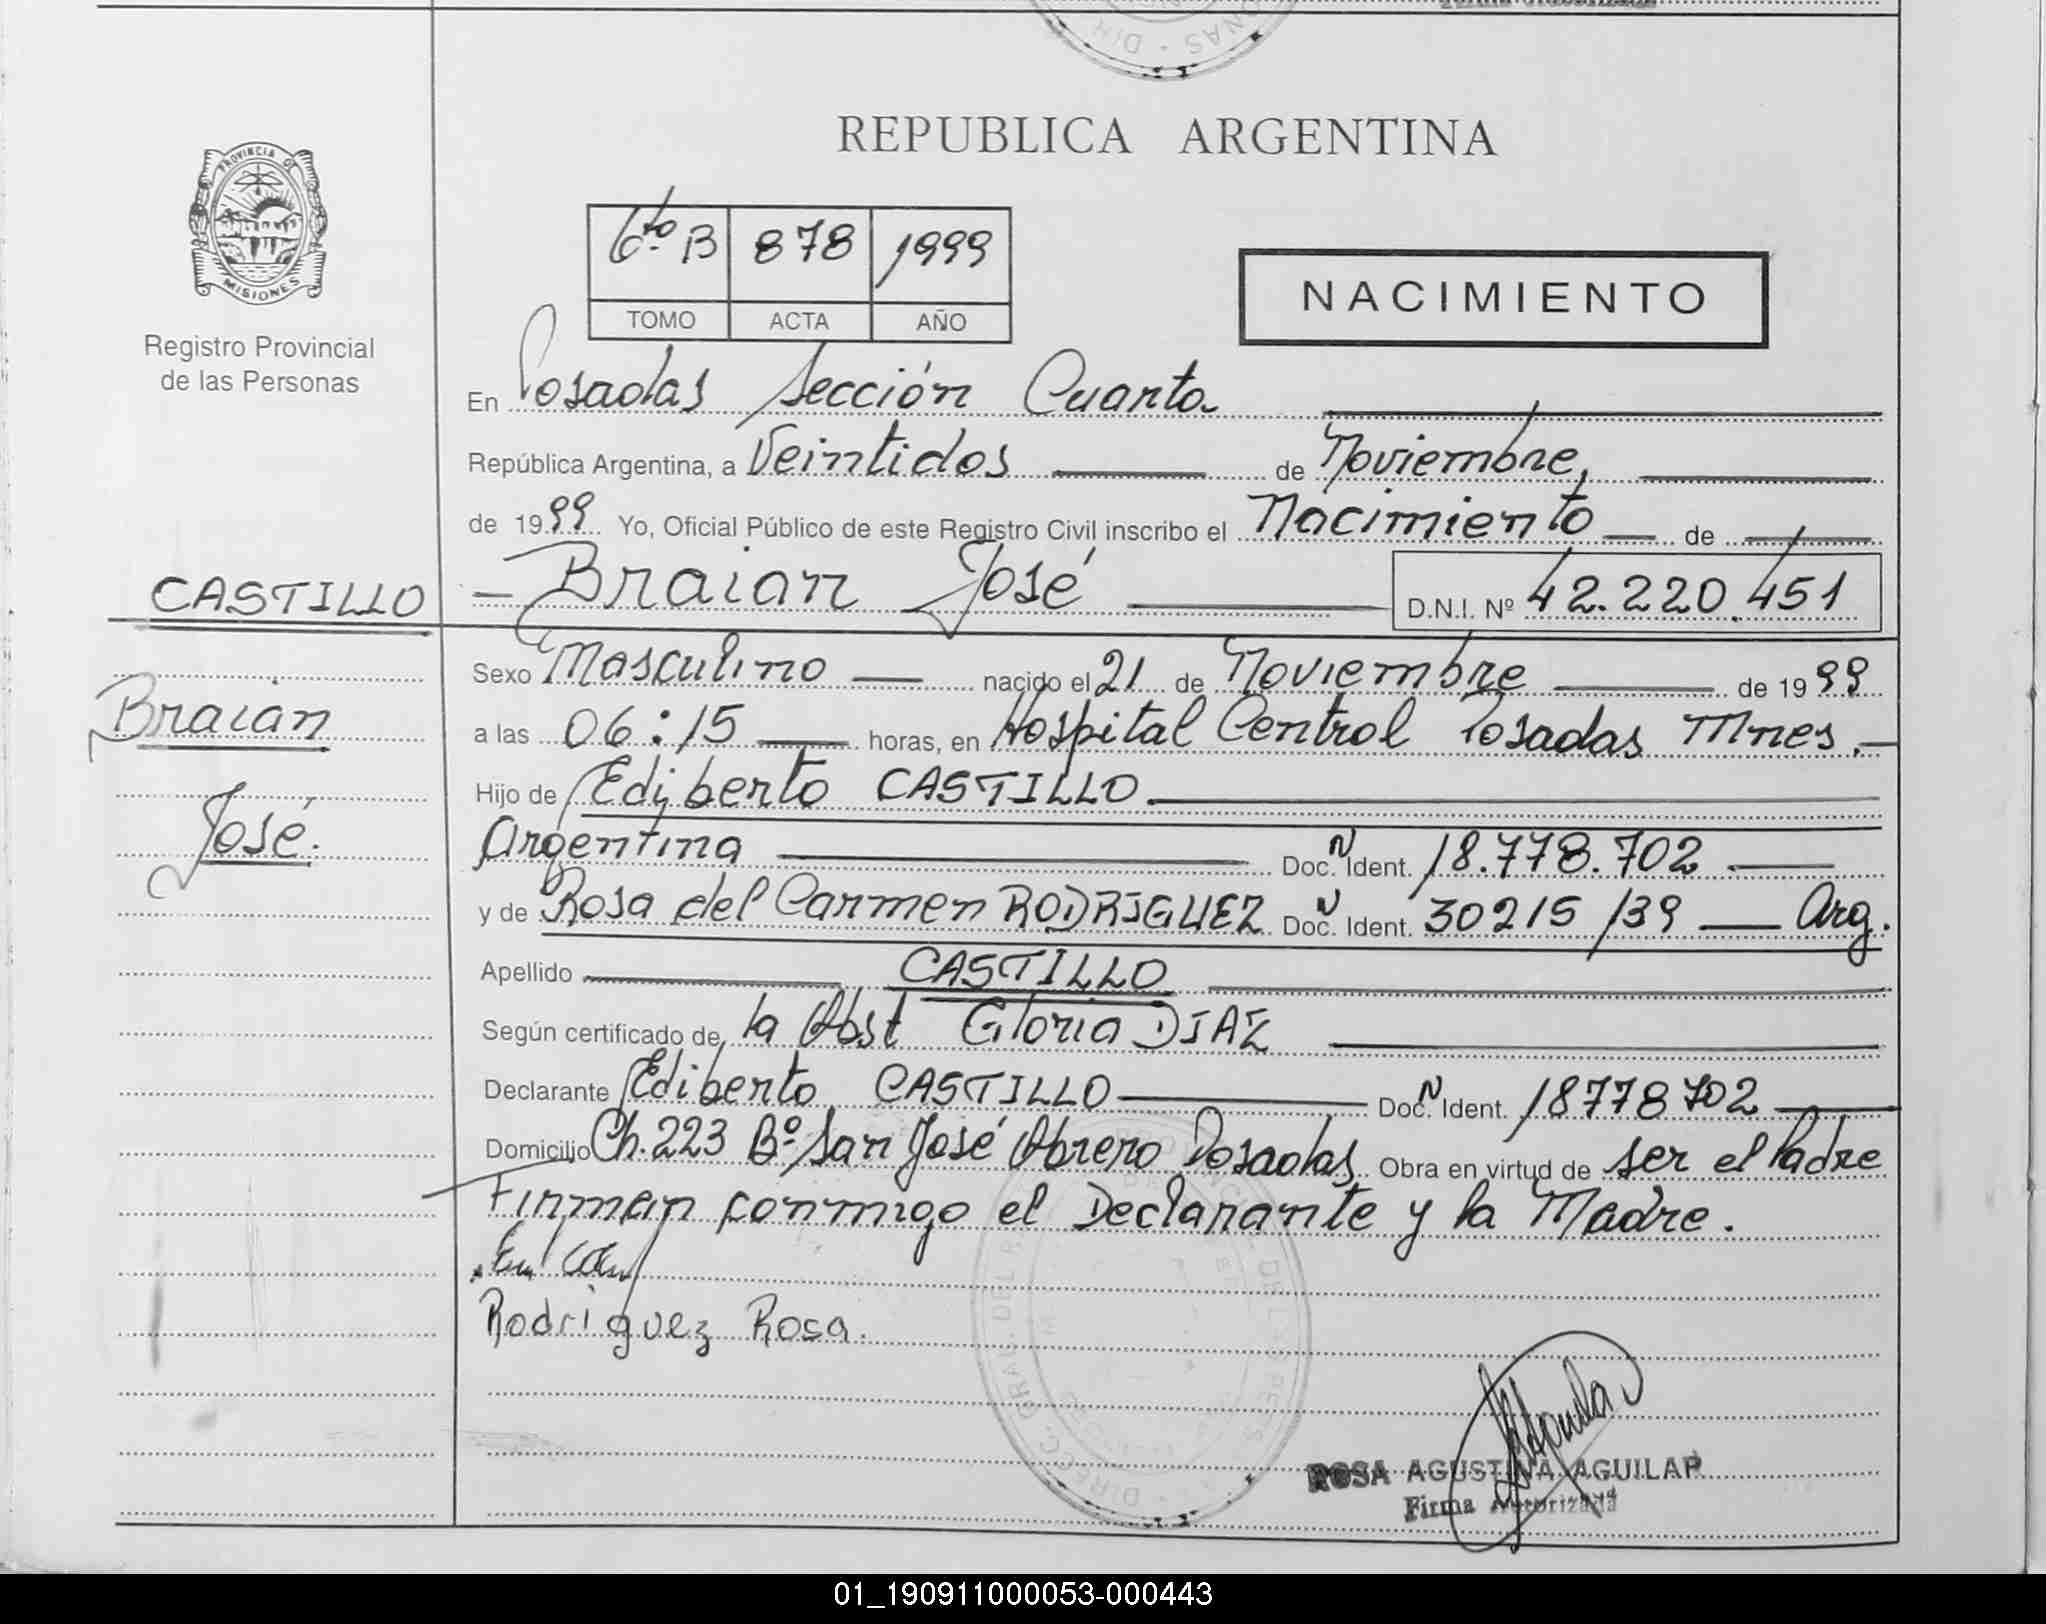 REPUBLICA ARGENTINA
PROVINCIA DE
MISIONES
Registro Provincial
de las Personas
6to. B 878 1999
TOMO ACTA AÑO
NACIMIENTO
En Posadas Sección Cuarta
República Argentina, a Veintidos de Noviembre,
de 1999 Yo, Oficial Público de este Registro Civil inscribo el Nacimiento de
CASTILLO Braian José D.N.I. Nº 42.220.451
Braian
José.
Sexo Masculino nacido el 21 de Noviembre de 1999
a las 06:15 horas, en Hospital Central Posadas Mnes.
Hijo de Ediberto CASTILLO
Argentina Doc. N Ident. 18.778.702
y de Rosa del Carmen RODRIGUEZ Doc. N Ident. 30215/39 Arg.
Apellido CASTILLO
Según certificado de la Obst Gloria DIAZ
Declarante Ediberto CASTILLO Doc. N Ident. 18778702
Domicilio Ch. 223 Bº San José Obrero Posadas Obra en virtud de ser el Padre
Firman conmigo el Declarante y la Madre.
Rodriguez Rosa.
ROSA AGUSTINA AGUILAR
Firma Autorizada
01_190911000053-000443